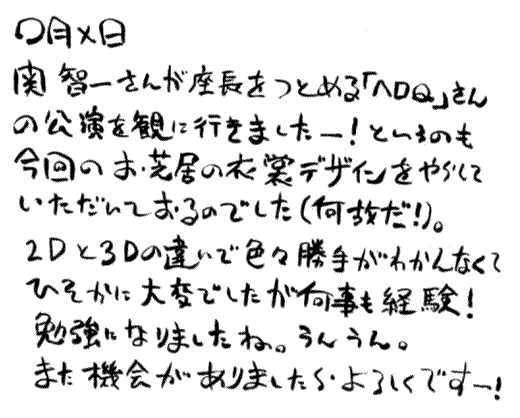 〇月×日
関 智一さんが座長をつとめる「ヘロQ」さん
の公演を観に行きましたー!というのも
今回のお芝居の衣裳デザインをやらして
いただいておるのでした(何故だ!)。
2Dと3Dの違いで色々勝手がわかんなくて
ひそかに大変でしたが何事も経験!
勉強になりましたね。うんうん。
また機会がありましたら・よろしくですー!